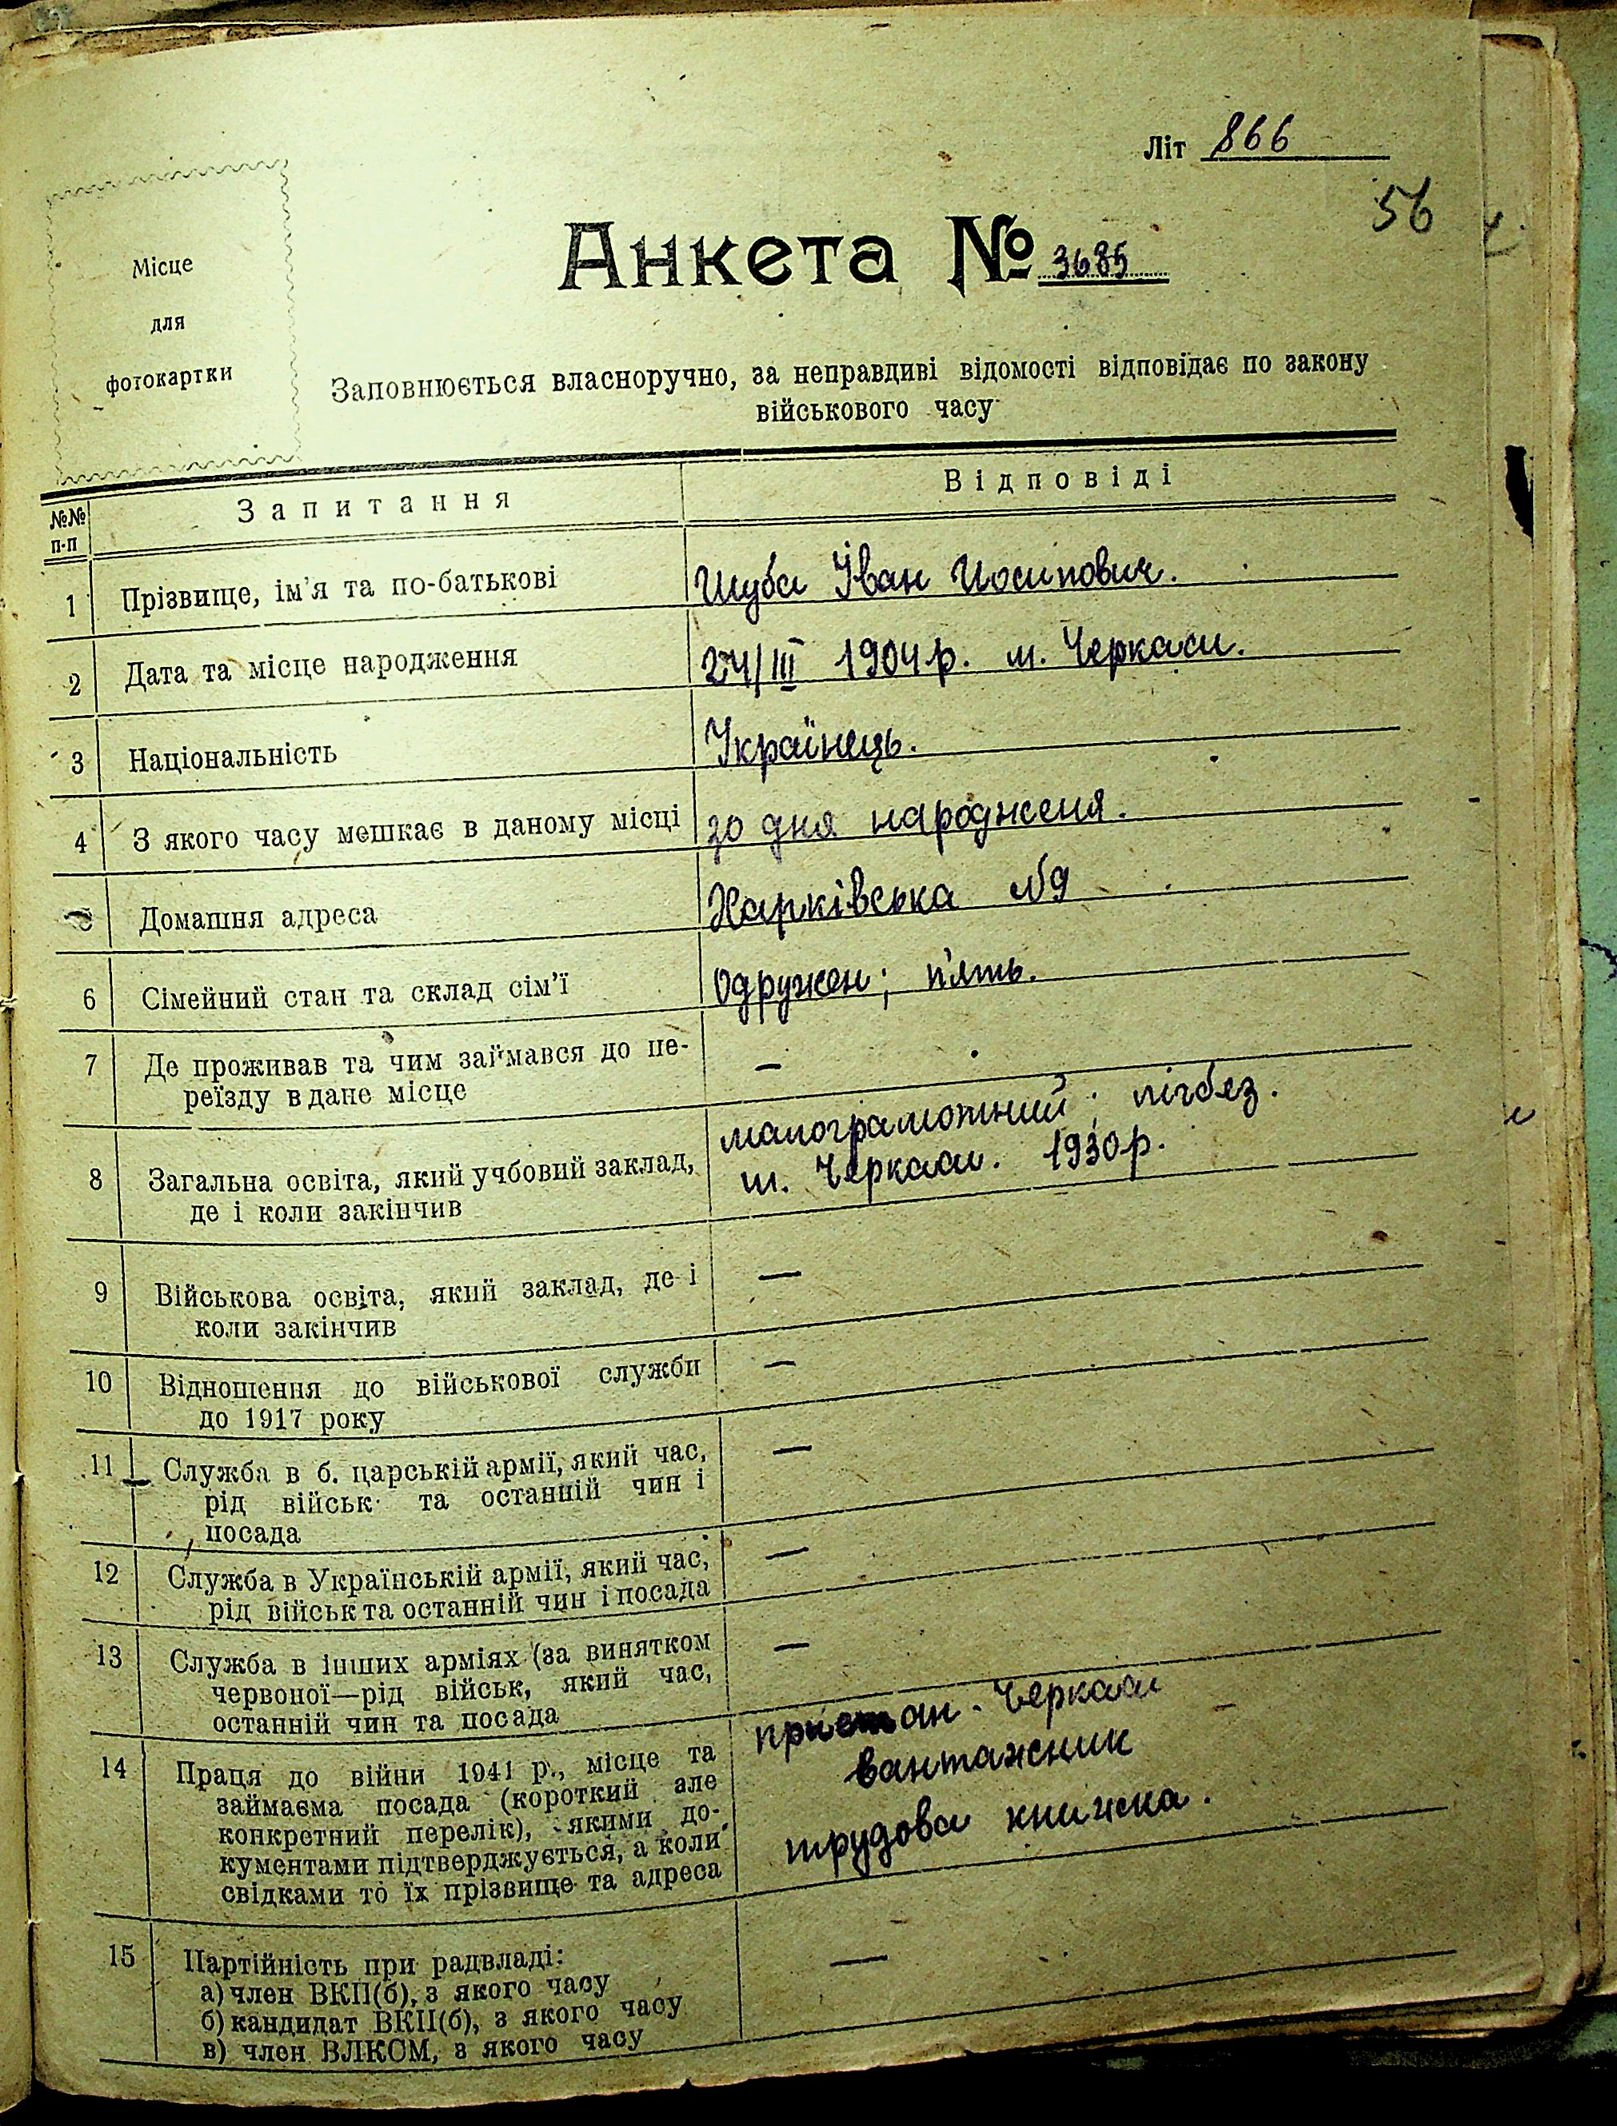 Літ 866
56
Місце
для
фотокартки
Анкета № 3685
Заповнюється власноручно, за неправдиві відомості відповідає по закону
військового часу
№№ п-п
Запитання
Відповіді
1 Прізвище, ім'я та по-батькові
Шуба Іван Иосипович.
2 Дата та місце народження
24/III 1904 р. м. Черкаси.
3 Національність
Українець.
4 З якого часу мешкає в даному місці
зо дня народженя.
Домашня адреса
Харківська №9
6 Сімейний стан та склад сім'ї
Одружен; п'ять.
7 Де проживав та чим займався до пе-
реїзду в дане місце
—
8 Загальна освіта, який учбовий заклад,
де і коли закінчив
малограмотний; лікбез.
м. Черкаси. 1930 р.
9 Військова освіта, який заклад, де і
коли закінчив
—
10 Відношення до військової служби
до 1917 року
—
11 Служба в б. царській армії, який час,
рід військ та останній чин і
посада
—
12 Служба в Українській армії, який час,
рід військ та останній чин і посада
—
13 Служба в інших арміях (за винятком
червоної—рід військ, який час,
останній чин та посада
—
14 Праця до війни 1941 р., місце та
займаєма посада (короткий але
конкретний перелік), якими до-
кументами підтверджується, а коли
свідками то їх прізвище та адреса
пристан. Черкаси
вантажник
трудова книжка.
15 Партійність при радвладі:
а) член ВКП(б), з якого часу
б) кандидат ВКП(б), з якого часу
в) член ВЛКСМ, з якого часу
—